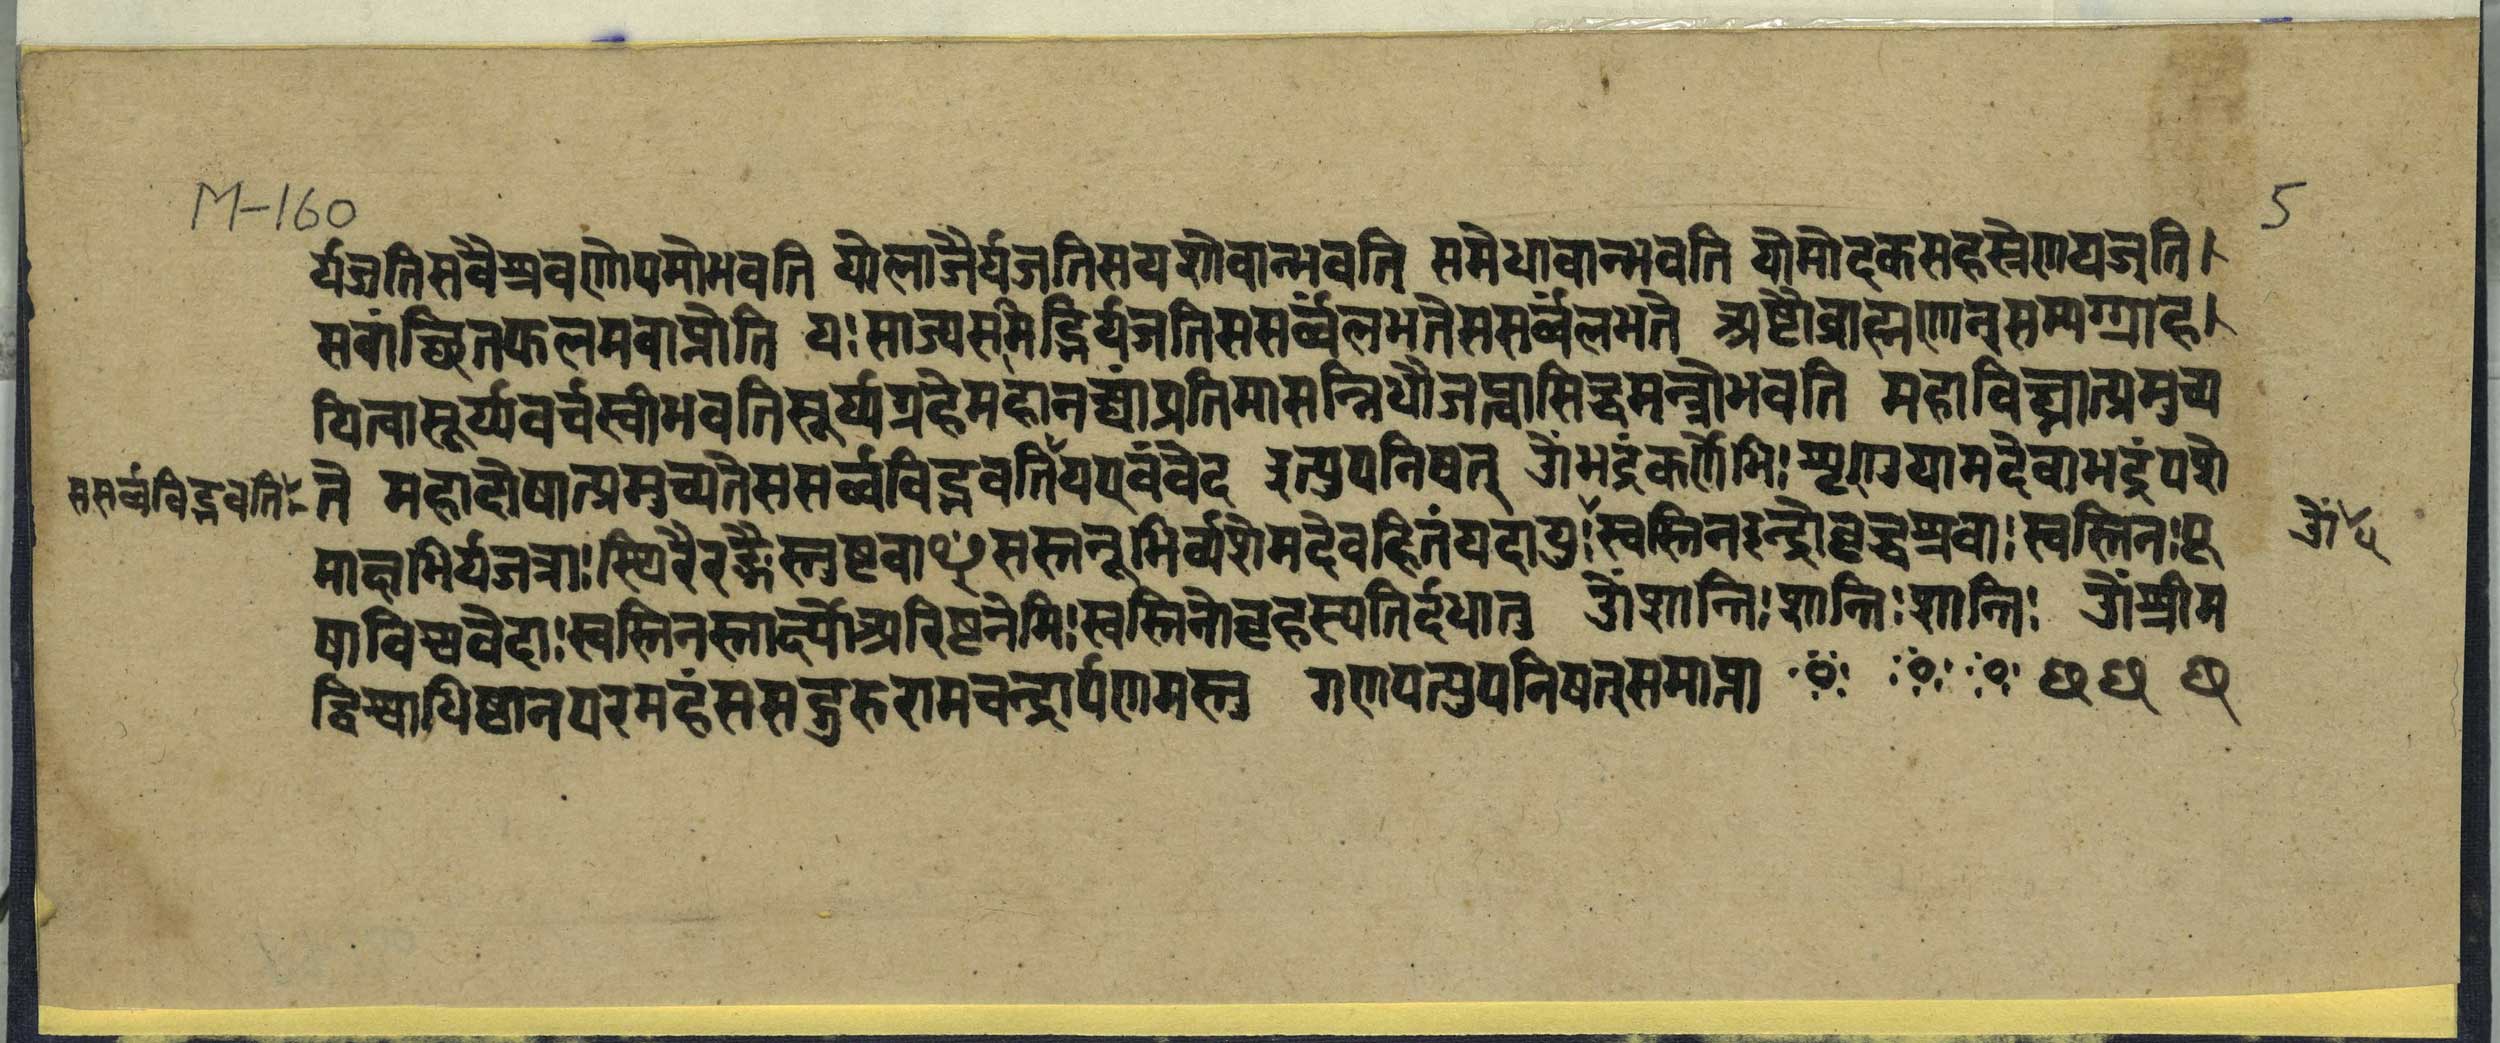 M-160
5
र्यजतिसवैश्रवणोपमोभवति योलाजैर्यजतिसयशोवान्भवति समेधावान्भवति योमोदकसहस्रेणयजति।
सवांछितफलमवाप्नोति यःसाज्यसमिद्भिर्यजतिससर्व्वंलभतेससर्व्वंलभते अष्टौब्राह्मणान्सम्यग्ग्राह।
यित्वासूर्य्यवर्चस्वीभवतिसूर्य्यग्रहेमहानद्यांप्रतिमासन्निधौजप्त्वासिद्धमन्त्रोभवति महाविघ्नात्प्रमुच्य
ससर्व्वविद्भवति
ते महादोषात्प्रमुच्यतेससर्व्वविद्भवतियएवंवेद इत्युपनिषत् ॐभद्रंकर्णेभिःशृणुयामदेवाभद्रंपश्ये
माक्षभिर्यजत्राःस्थिरैरङ्गैस्तुष्टवाꣳसस्तनूभिर्व्यशेमदेवहितंयदायुःस्वस्तिनइन्द्रोवृद्धश्रवाःस्वस्तिनःपू
ॐ
षाविश्ववेदाःस्वस्तिनस्तार्क्ष्योअरिष्टनेमिःस्वस्तिनोबृहस्पतिर्दधातु ॐशान्तिःशान्तिःशान्तिः ॐश्रीम
द्विश्वाधिष्ठानपरमहंससद्गुरुरामचन्द्रार्पणमस्तु गणपत्युपनिषत्समाप्ता